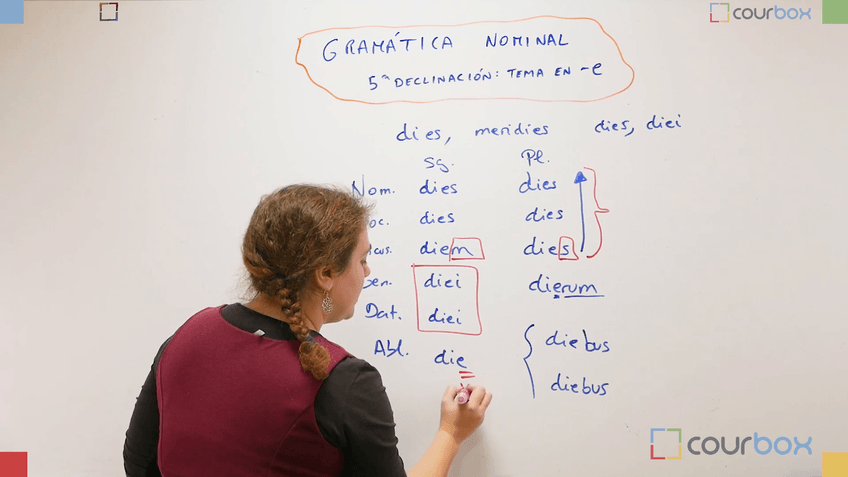 courbox
GRAMÁTICA NOMINAL
5ª DECLINACIÓN: TEMA EN -e
dies, meridies dies, diei
Sg. Pl.
Nom. dies dies
oc. dies dies
cus. diem dies
en. diei dierum
Dat. diei
Abl. die
diebus
diebus
courbox